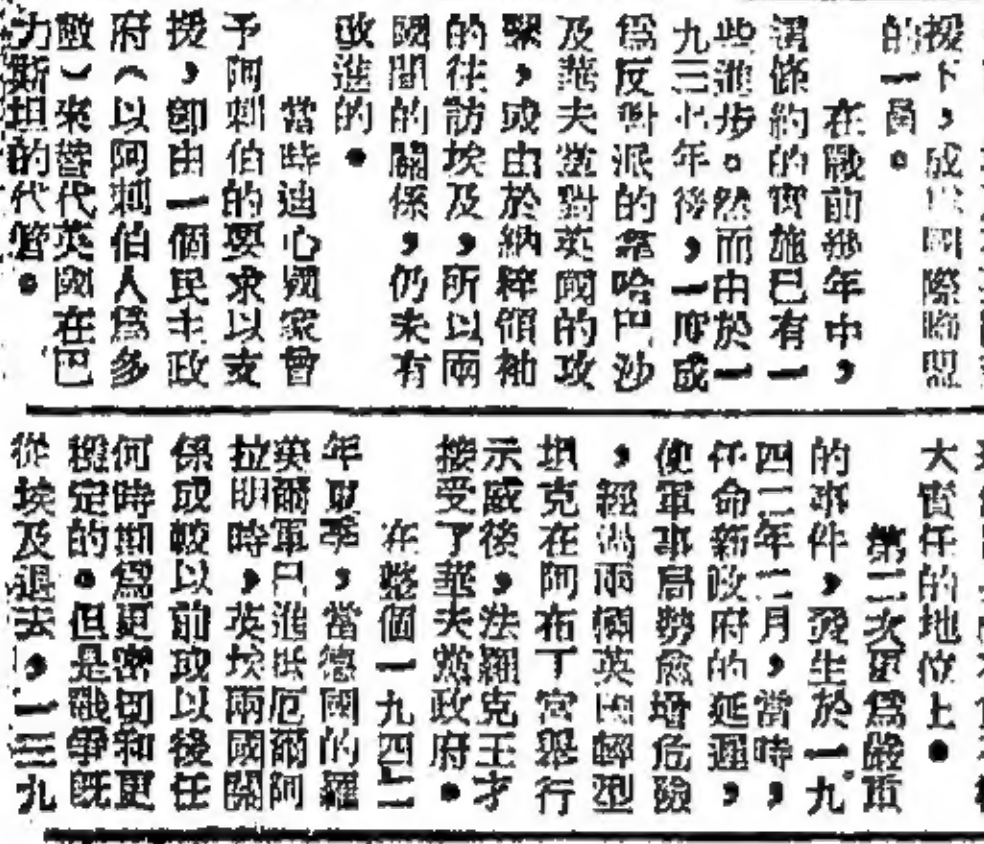 援下,成為國際聯盟
的一員。
在戰前幾年中,
謂條約的實施已有一
些進步。然而由於一
九三七年後,一度成
為反對派的韋哈巴沙
及華夫黨對英國的攻
擊,或由於納粹領袖
的往訪埃及,所以兩
國間的關係,仍未有
改進的。
當時迪心國家曾
予阿剌伯的要求以支
援,卽由一個民主政
府(以阿剌伯人為多
數)來替代英國在巴
力斯坦的代管。
大責任的地位上。
第二次更為嚴重
的事件,發生於一九
四二年二月,當時,
任命新政府的延遲,
使軍事局勢愈增危險
,經過兩個英國輕型
坦克在阿布丁宮舉行
示威後,法羅克王才
接受了華夫黨政府。
在整個一九四二
年夏季,當德國的羅
英爾軍已進抵厄爾阿
拉明時,英埃兩國關
係成較以前或以後任
何時期為更密切和更
穩定的。但是戰爭旣
從埃及退去,一三九